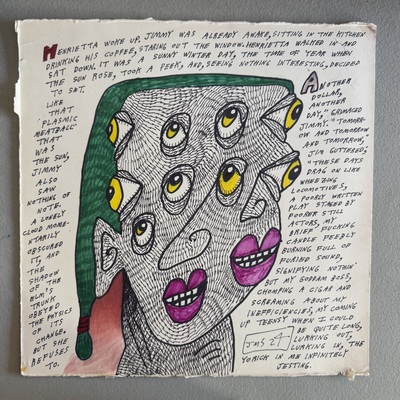 HENRIETTA WOKE UP. JIMMY WAS ALREADY AWAKE, SITTING IN THE KITCHEN
DRINKING HIS COFFEE, STARING OUT THE WINDOW. HENRIETTA WALKED IN AND
SAT DOWN. IT WAS A SUNNY WINTER DAY, THE TIME OF YEAR WHEN
THE SUN ROSE, TOOK A PEEK, AND, SEEING NOTHING INTERESTING, DECIDED
TO SET.
LIKE
THAT
PLASMIC
MEATBALL
THAT
WAS
THE SUN,
JIMMY
ALSO
SAW
NOTHING OF
NOTE.
A LONELY
CLOUD MOME-
NTARILY
OBSCURED
IT, AND
THE
SHADOW
OF THE
ELM'S
TRUNK
OBEYED
THE PHYSICS
OF ITS
CHANGE.
BUT SHE
REFUSES
TO.
ANOTHER
DOLLAR,
ANOTHER
DAY," GRIMACED
JIMMY. "TOMORR-
OW AND TOMORROW
AND TOMORROW,"
JIM GUTTERED;
"THESE DAYS
DRAG ON LIKE
WHEEZING
LOCOMOTIVES,
A POORLY WRITTEN
PLAY STAGED BY
POORER STILL
ACTORS, MY
BRIEF FUCKING
CANDLE FEEBLY
BURNING FULL OF
FURIED SOUND,
SIGNIFYING NOTHIN'
BUT MY GODDAM BOSS,
CHOMPING A CIGAR AND
SCREAMING ABOUT MY
INEFFICIENCIES, MY COMING
UP TEENSY WHEN I COULD
BE QUITE LONG,
LURKING OUT,
LURKING IN, THE
YORICK IN ME INFINITELY
JESTING.
JMS 24